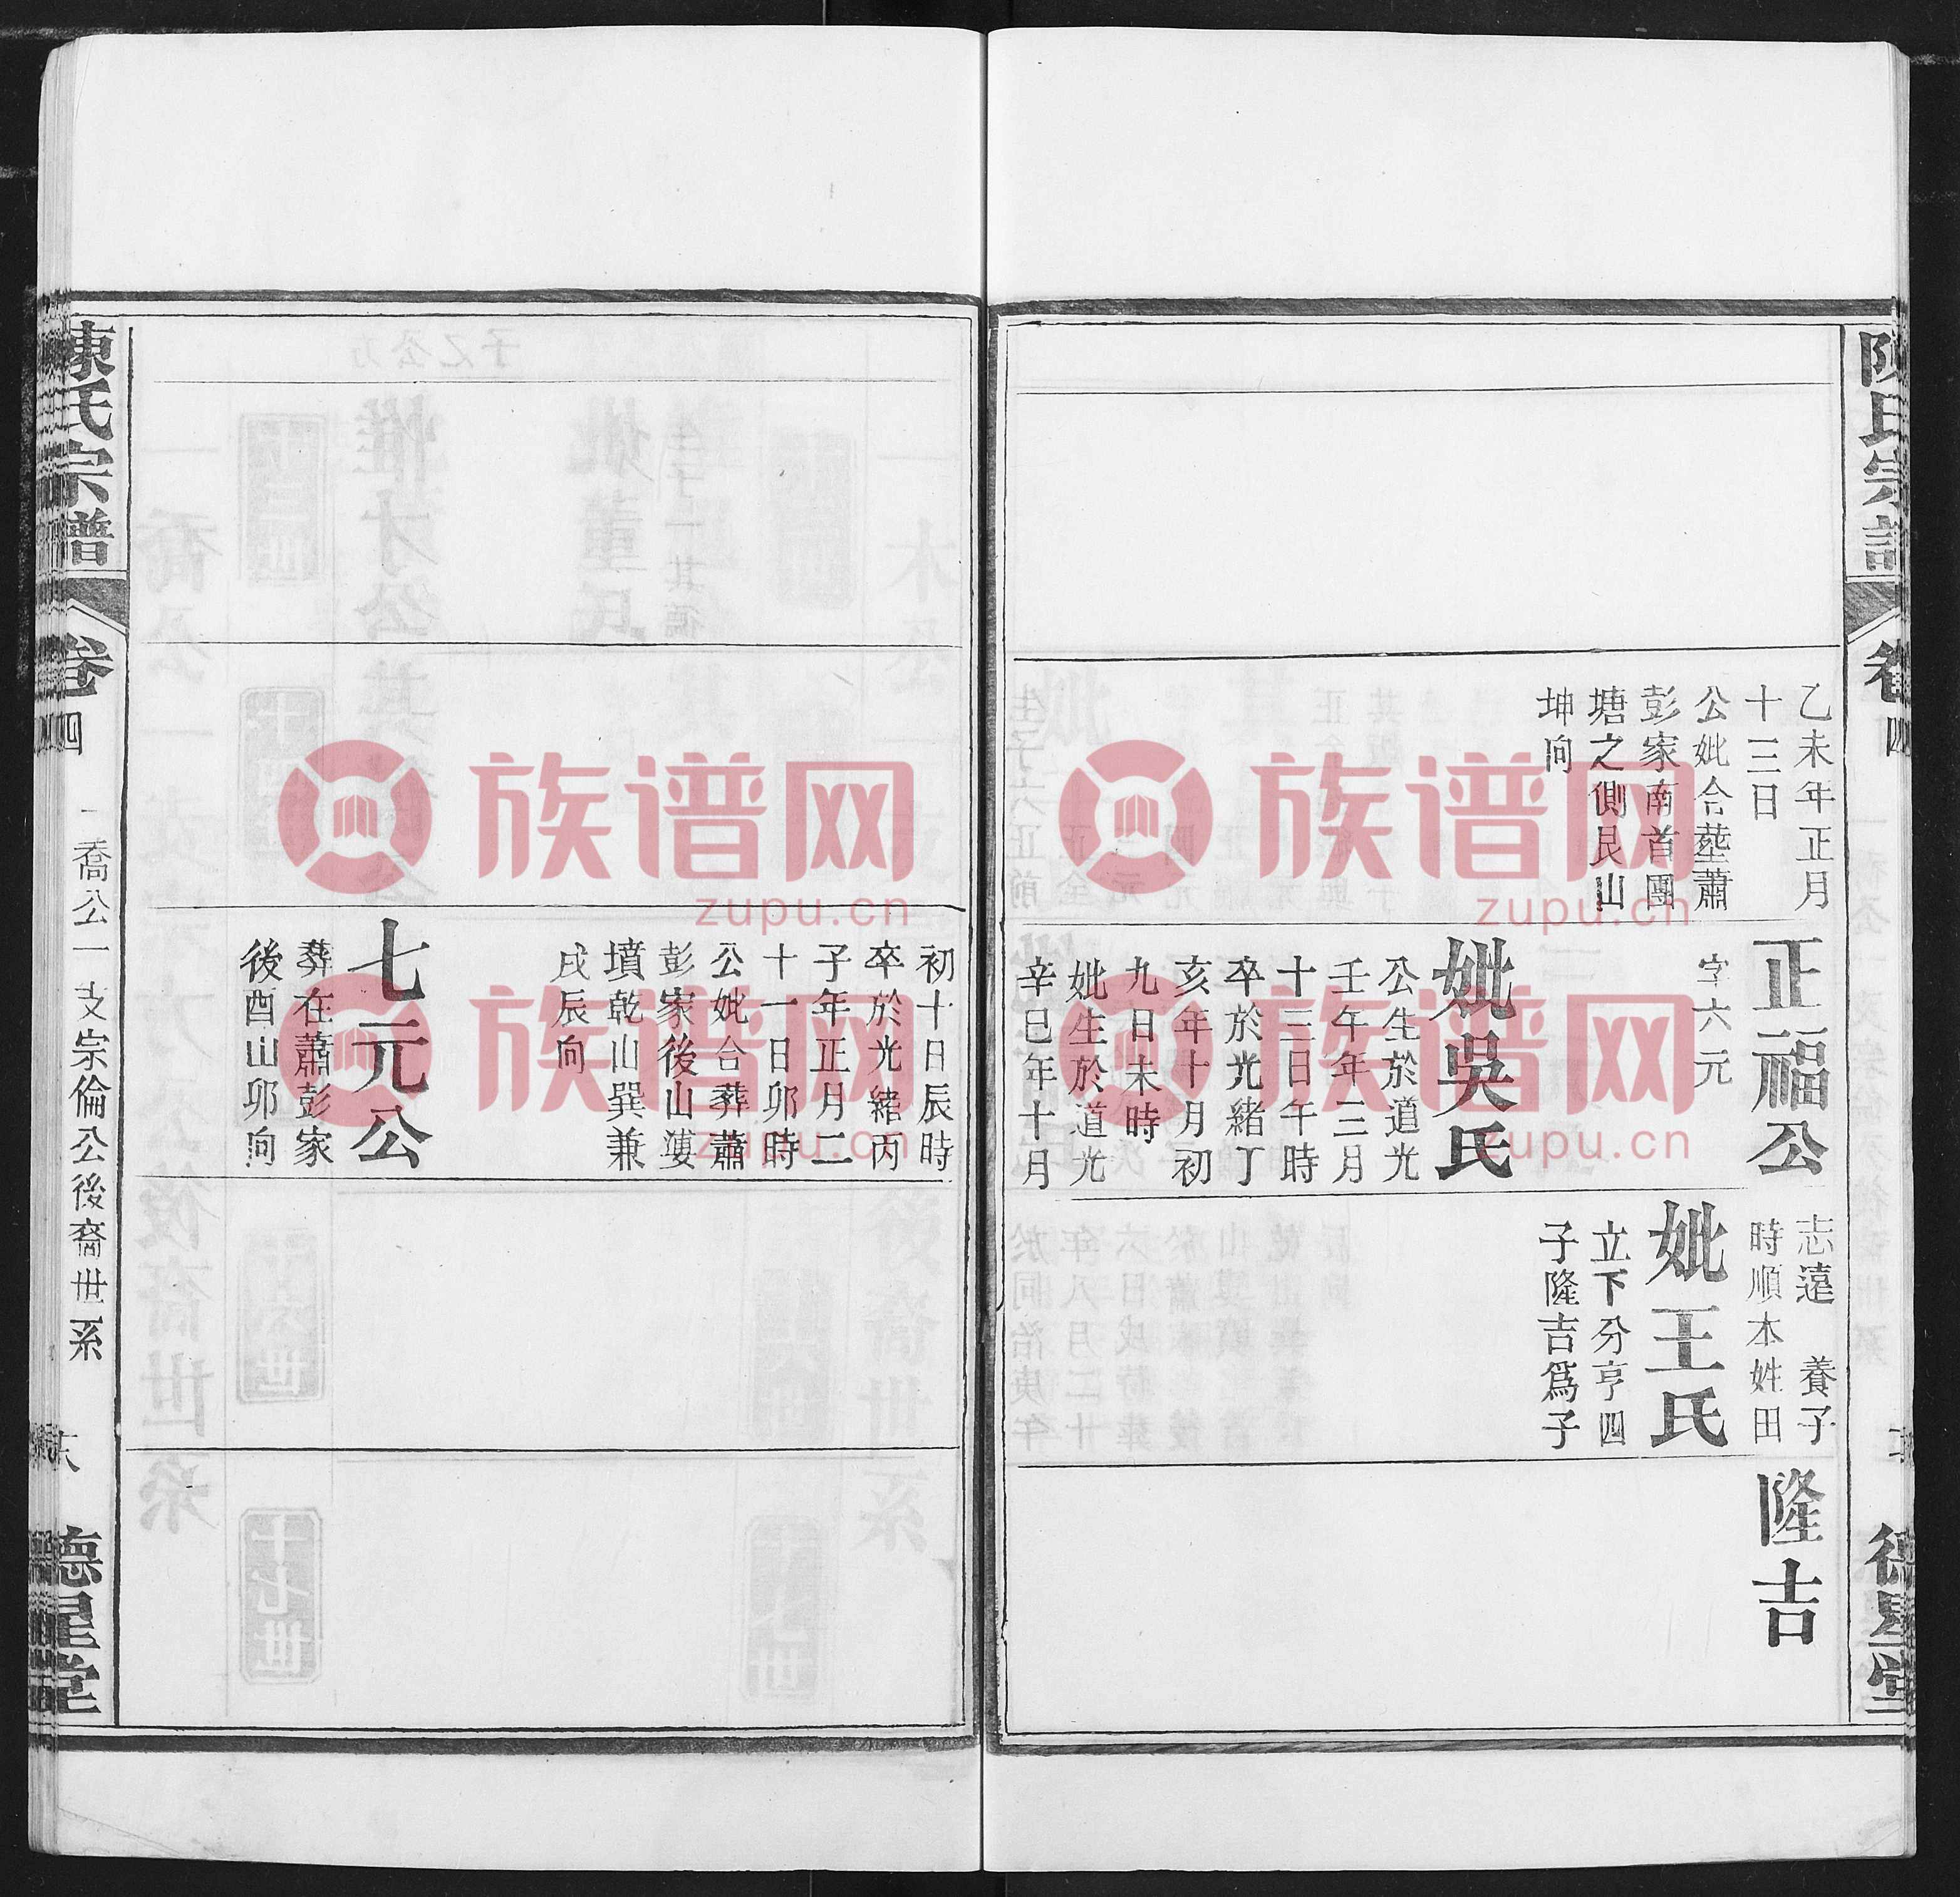 陳氏宗譜
卷四
德星堂
乙未年正月
十三日
公妣合塟蕭
彭家南首團
塘之側艮山
坤向
正福公
字六元
妣吳氏
公生於道光
壬午年三月
十三日午時
卒於光緒丁
亥年十月初
九日未時
妣生於道光
辛巳年十月
志遠 養子
時順本姓田
妣王氏
立下分亨四
子隆吉爲子
隆吉
初十日辰時
卒於光緒丙
子年正月二
十一日卯時
公妣合葬蕭
彭家後山塿
墳乾山巽兼
戌辰向
七元公
葬在蕭彭家
後酉山卯向
陳氏宗譜
卷四
一喬公一支宗倫公後裔世系
德星堂
族谱网
zupu.cn
族谱网
zupu.cn
族谱网
zupu.cn
族谱网
zupu.cn